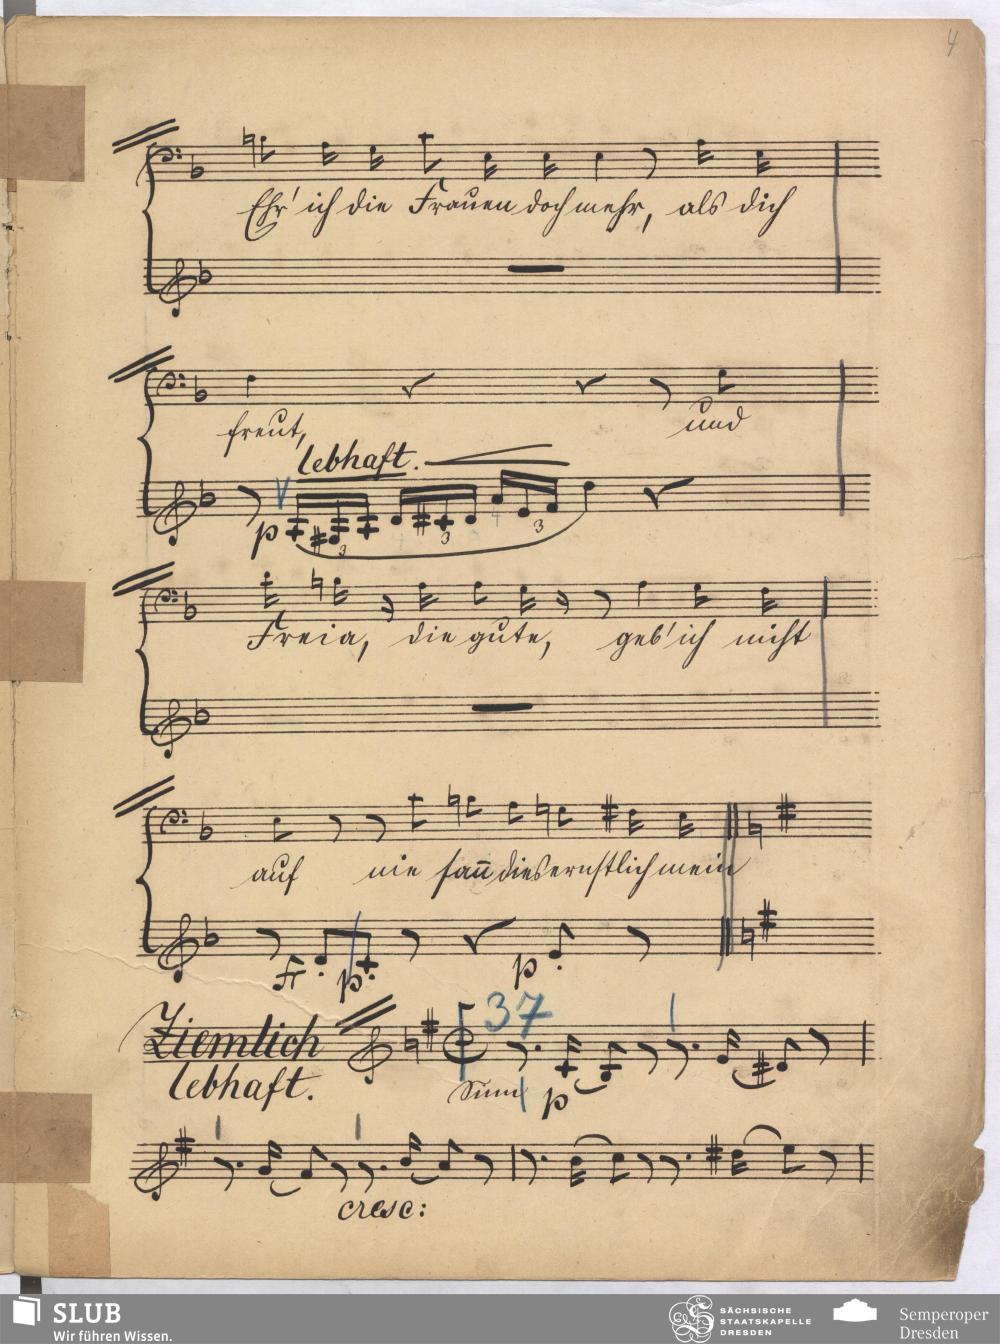 4
Ehr' ich die Frauen doch mehr, als dich
freut, und
lebhaft.
p
3 3 3
Freia, die gute, geb' ich nicht
auf nie sañ dies ernstlich mein
p. p
37
Ziemlich
lebhaft.
Sinn p
cresc:
SLUB
Wir führen Wissen.
SÄCHSISCHE
STAATSKAPELLE
DRESDEN
Semperoper
Dresden